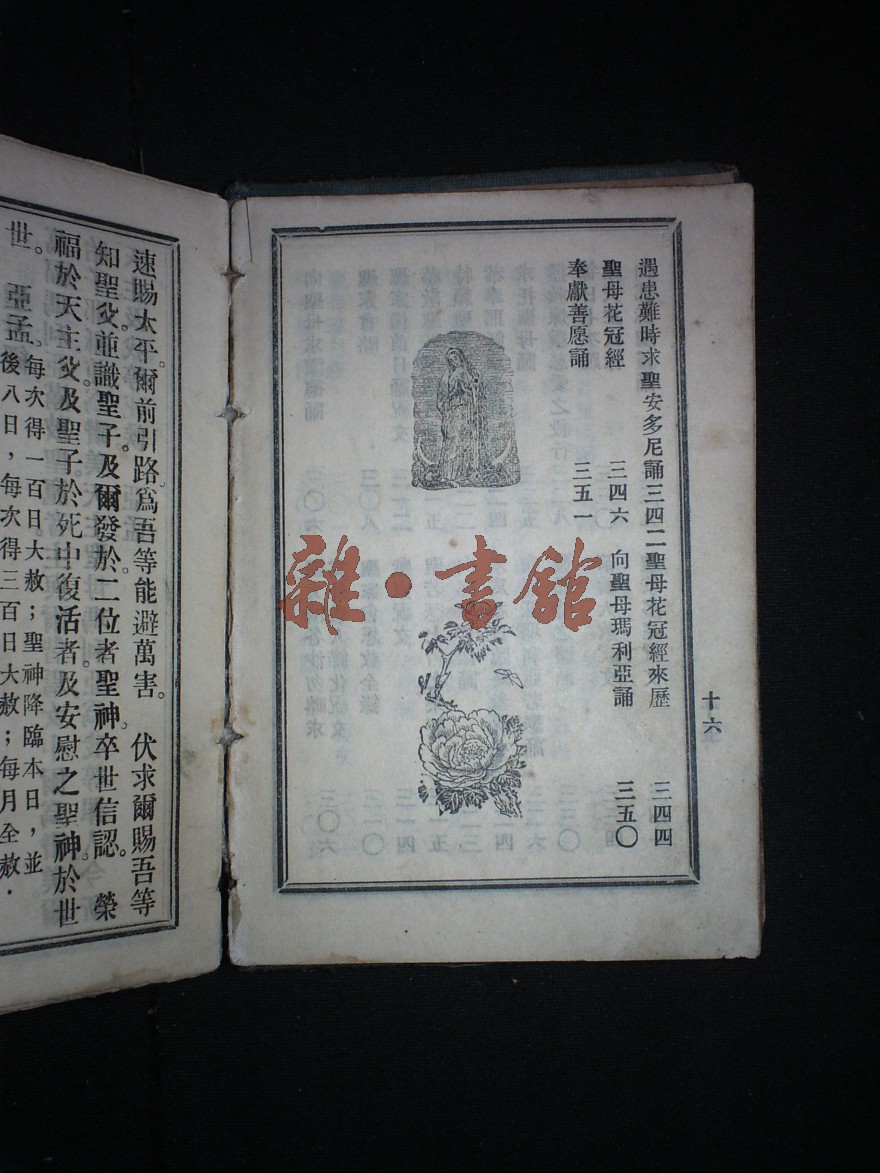 遇患難時求聖安多尼誦三四二聖母花冠經來歷 三四四
聖母花冠經 三四六 向聖母瑪利亞誦 三五〇
奉獻善愿誦 三五一
十六
雜·書館
速賜太平。爾前引路。爲吾等能避萬害。 伏求爾賜吾等
知聖父。並識聖子。及爾發於二位者聖神。卒世信認。 榮
福於天主父。及聖子於死中復活者。及安慰之聖神。於世
世。 亞孟。每次得一百日大赦；聖神降臨本日，並
後八日，每次得三百日大赦；每月全赦．